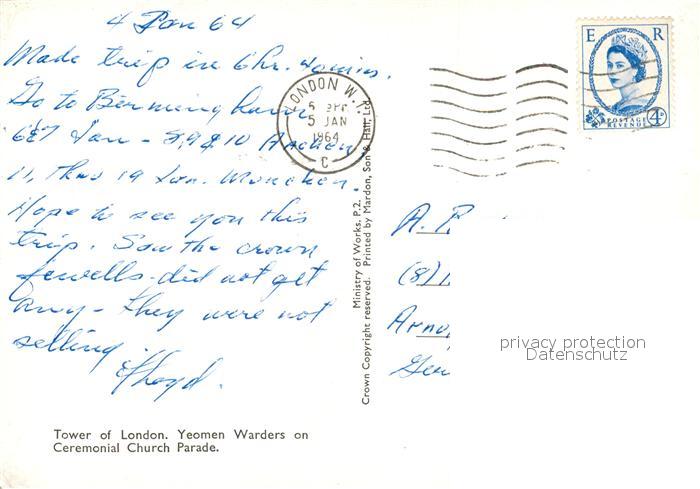 4 Jan 64
Made trip in 6 hr. 40 min.
Go to Birmingham
6 & 7 Jan - 8, 9 & 10 Aachen
11, thru 19 Jan. Munchen.
Hope to see you this
trip. Saw the crown
jewells - did not get
any - they were not
selling
Floyd.
Tower of London. Yeomen Warders on
Ceremonial Church Parade.
Ministry of Works. P.2.
Crown Copyright reserved. Printed by Mardon, Son & Hall, Ltd.
LONDON W.1.
5 JAN
1964
C
E R
POSTAGE
REVENUE
4D
A.
(8)
Ger
privacy protection
Datenschutz